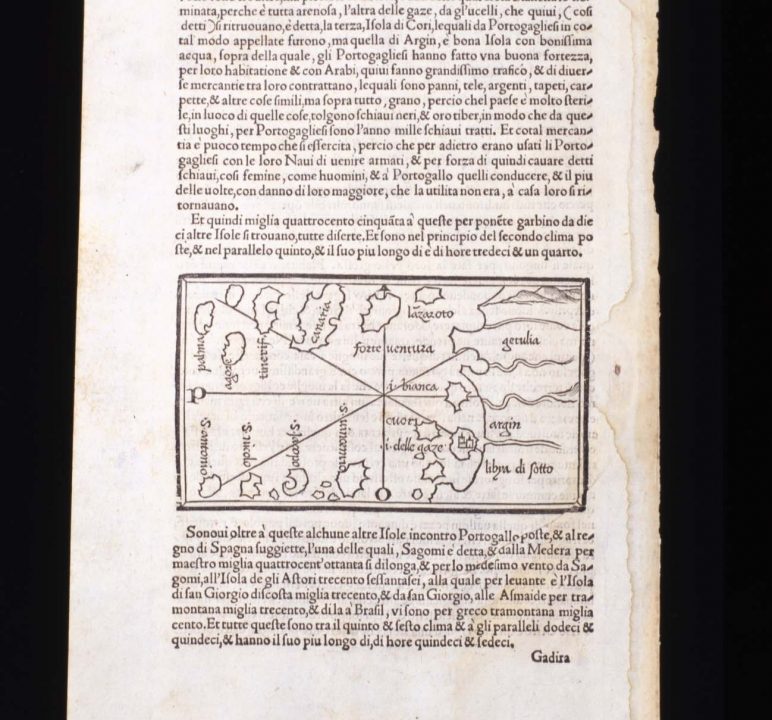 minata,perche è tutta arenosa, l'altra delle gaze, da gl'ucelli, che quiui, (cosi
detti) si ritruouano,è detta,la terza,Isola di Cori,lequali da Portogagliesi in co⸗
tal modo appellate furono, ma quella di Argin, è bona Isola con bonissima
acqua, sopra della quale, gli Portogagliesi hanno fatto vna buona fortezza,
per loro habitatione & con Arabi, quiui fanno grandissimo trafico, & di diuer⸗
se mercantie tra loro contrattano, lequali sono panni, tele, argenti, tapeti, car⸗
pette,& altre cose simili,ma sopra tutto, grano, percio chel paese è molto steri⸗
le,in luoco di quelle cose,tolgono schiaui neri,& oro tiber,in modo che da que⸗
sti luoghi, per Portogagliesi sono l'anno mille schiaui tratti. Et cotal mercan⸗
tia è puoco tempo che si essercita, percio che per adietro erano usati li Porto⸗
gagliesi con le loro Naui di uenire armati, & per forza di quindi cauare detti
schiaui,cosi femine, come huomini, & à Portogallo quelli conducere, & il piu
delle uolte,con danno di loro maggiore, che la utilita non era, à casa loro si ri⸗
tornauano.
Et quindi miglia quattrocento cinquãta à queste per ponẽte garbino da die
ci altre Isole si trouano,tutte diserte.Et sono nel principio del secondo clima po
ste,& nel parallelo quinto,& il suo piu longo di è di hore tredeci & un quarto.
palma
agore
tinerif
canaria
forte uentura
lãzaroto
getulia
i. bianca
P
cuori
i. delle gaze
argin
libya di sotto
S. antonio
S. nicolo
S. Jacopo
O
Sonoui oltre à queste alchune altre Isole incontro Portogallo poste,& al re⸗
gno di Spagna suggiette,l'una delle quali, Sagomi è detta,& dalla Medera per
maestro miglia quattrocent'ottanta si dilonga,& per lo medesimo vento da Sa⸗
gomi,all'Isola de gli Astori trecento sessantasei, alla quale per leuante è l'Isola
di san Giorgio discosta miglia trecento,& da san Giorgio, alle Asmaide per tra⸗
montana miglia trecento,& di la à Brasil, vi sono per greco tramontana miglia
cento.Et tutte queste sono tra il quinto & sesto clima & à gli paralleli dodeci &
quindeci,& hanno il suo piu longo di,di hore quindeci & sedeci.
Gadira